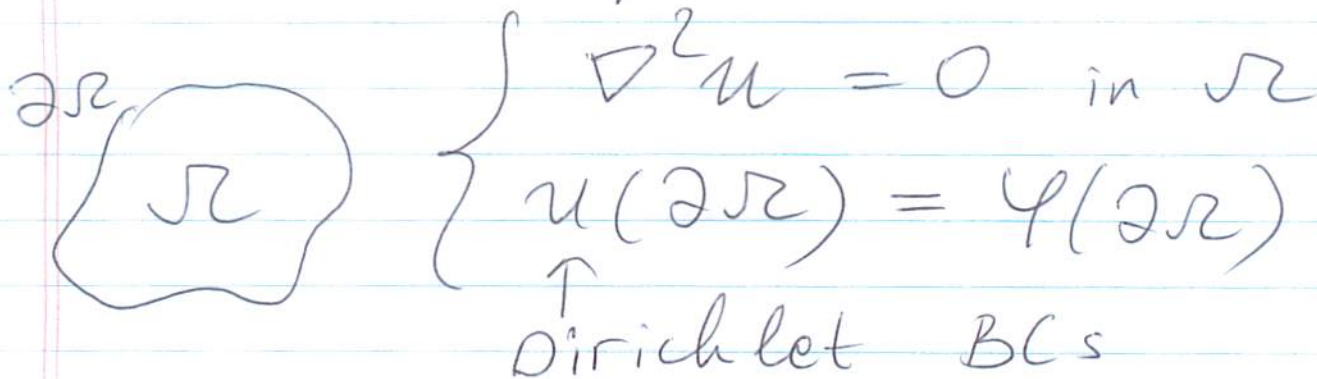 ∇²u = 0 in Ω
∂Ω
Ω
u(∂Ω) = φ(∂Ω)
↑
Dirichlet BCs